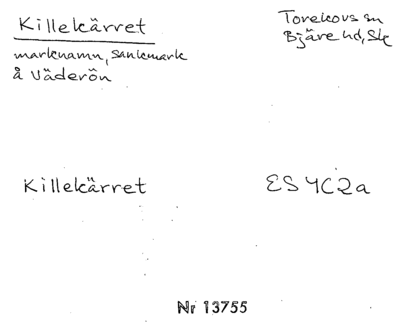 Killekärret
Torekovs sn
Bjäre hd, Sk
marknamn, sankmark
å Väderön
Killekärret
ES4C2a
Nr 13755